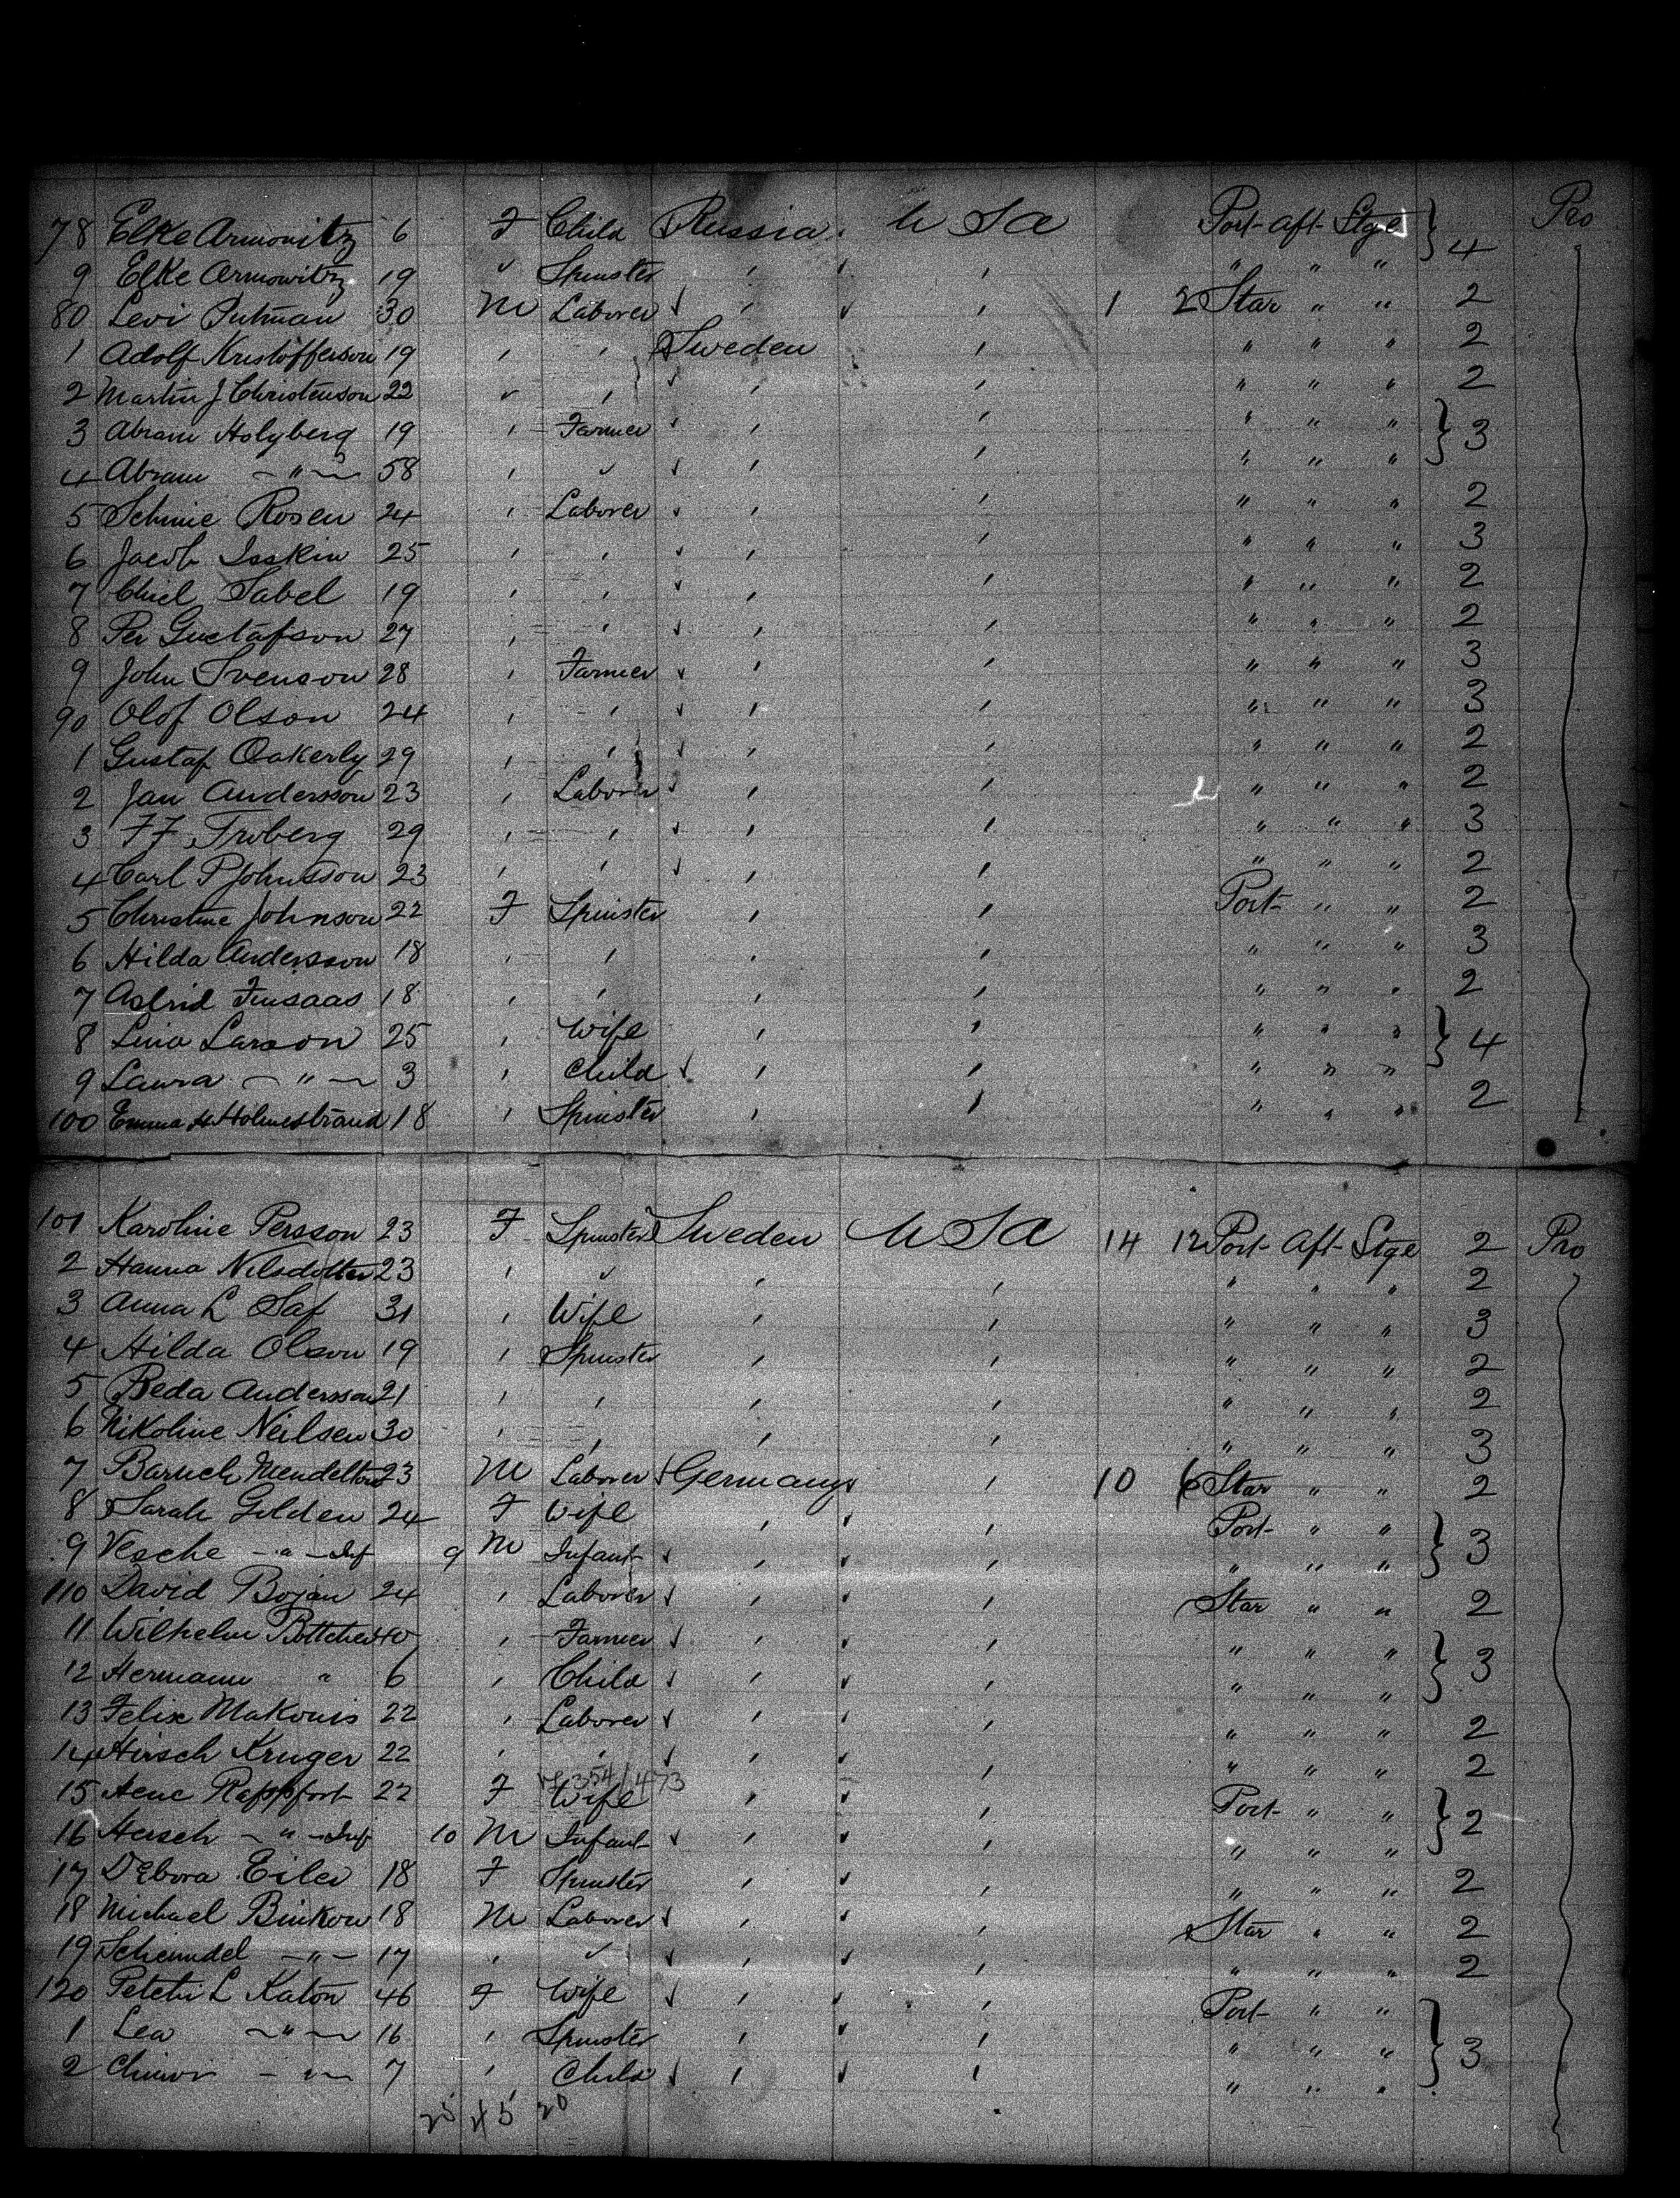 78 Elke Armowitz 6 F Child Russia U S A Port aft Stge } 4 Pro
9 Elke Armowitz 19 " Spinster " " " " "
80 Levi 30 M Laborer " " 1 2 Star " " 2
1 Adolf Kristofferson 19 " " Sweden " " " " 2
2 Martin J Christenson 22 " " " " " " " 2
3 Abram Holyberg 19 " Farmer " " " " " } 3
4 Abram — " — 58 " " " " " " "
5 Schmie Rosen 24 " Laborer " " " " " 2
6 Jacob Isskin 25 " " " " " " " 3
7 Chiel Sabel 19 " " " " " " " 2
8 Per Gustafson 27 " " " " " " " 2
9 John Svenson 28 " Farmer " " " " " 3
90 Olof Olson 24 " " " " " " " 3
1 Gustaf Oakerly 29 " " " " " " " 2
2 Jan Andersson 23 " Laborer " " " " " 2
3 F F Troberg 29 " " " " " " " 3
4 Carl P Johnsson 23 " " " " " " " 2
5 Christine Johnson 22 F Spinster " " Port " " 2
6 Hilda Andersson 18 " " " " " " " 3
7 Astrid Finsaas 18 " " " " " " " 2
8 Lina Larson 25 " Wife " " " " " } 4
9 Laura — " — 3 " Child " " " " "
100 Emma H Holmesbrand 18 " Spinster " " " " " 2
101 Karoline Persson 23 F Spinster Sweden U S A 14 12 Port aft Stge 2 Pro
2 Hanna Nilsdotter 23 " " " " " " " 2
3 Anna L Saf 31 " Wife " " " " " 3
4 Hilda Olson 19 " Spinster " " " " " 2
5 Beda Andersson 21 " " " " " " " 2
6 Nikoline Neilsen 30 " " " " " " " 3
7 Baruch 23 M Laborer Germany " 10 6 Star " " 2
8 Sarah Golden 24 F Wife " " Port " " } 3
9 Vesche — " — Inf 9 M Infant " " " " "
110 David Bojan 24 " Laborer " " Star " " 2
11 Wilhelm Bottcher 40 " Farmer " " " " " } 3
12 Hermann " 6 " Child " " " " "
13 Felix Makouis 22 " Laborer " " " " " 2
14 Hirsch Kruger 22 " " " " " " " 2
354/473
15 Hene Rappfort 22 F Wife " " Port " " } 2
16 Hersch — " — Inf 10 M Infant " " " " "
17 Debora Eiler 18 F Spinster " " " " " 2
18 Michael Binkow 18 M Laborer " " Star " " 2
19 Scheindel — " — 17 " " " " " " " 2
120 L Katon 46 F Wife " " Port " " } 3
1 Lea — " — 16 " Spinster " " " " "
2 — " — 7 " Child " " " " "
25 45 20